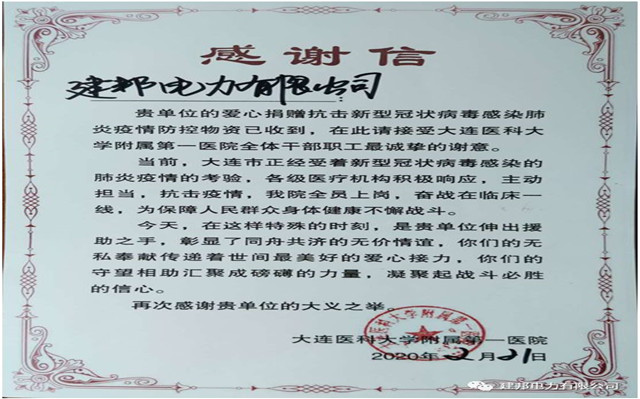 感谢信
建邦电力有限公司：
贵单位的爱心捐赠抗击新型冠状病毒感染肺
炎疫情防控物资已收到，在此请接受大连医科大
学附属第一医院全体干部职工最诚挚的谢意。
当前，大连市正经受着新型冠状病毒感染的
肺炎疫情的考验，各级医疗机构积极响应，主动
担当，抗击疫情，我院全员上岗，奋战在临床一
线，为保障人民群众身体健康不懈战斗。
今天，在这样特殊的时刻，是贵单位伸出援
助之手，彰显了同舟共济的无价情谊，你们的无
私奉献传递着世间最美好的爱心接力，你们的
守望相助汇聚成磅礴的力量，凝聚起战斗必胜
的信心。
再次感谢贵单位的大义之举。
大连医科大学附属第一医院
2020年2月21日
大连医科大学附属第一医院
建邦电力有限公司